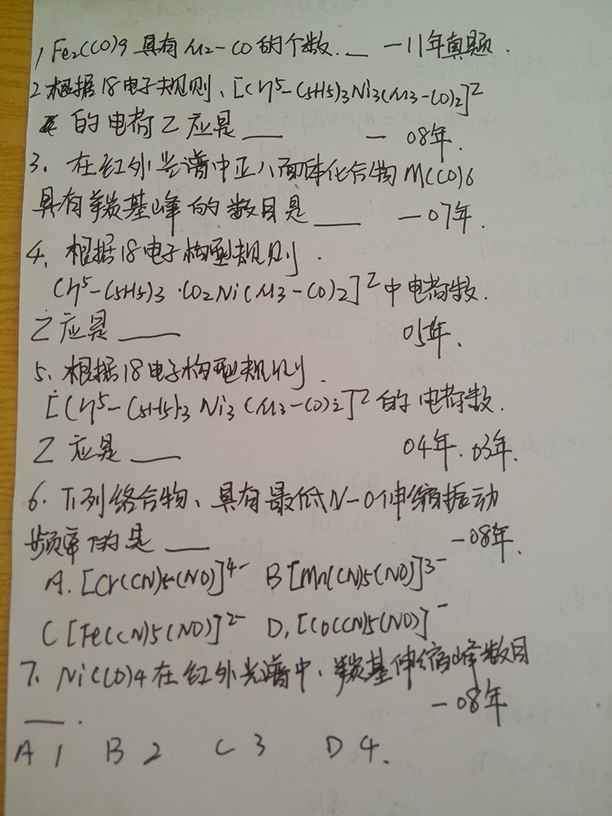 1 Fe2(CO)9 具有 μ2-CO 的个数. __ —11年真题.
2 根据18电子规则、[(η5-C5H5)3Ni3(μ3-CO)2]Z
的电荷Z应是 ___ — 08年.
3. 在红外光谱中正八面体化合物 M(CO)6
具有羰基峰的数目是 ___ —07年.
4. 根据18电子构型规则.
(η5-C5H5)3·Co2Ni(μ3-CO)2]Z中电荷数.
Z应是 ___ 05年.
5. 根据18电子构型规则.
[(η5-C5H5)3 Ni3(μ3-CO)2]Z的电荷数.
Z 应是 ___ 04年.03年.
6. 下列络合物、具有最低N-O伸缩振动
频率的是 ___ —08年.
A.[Cr(CN)5(NO)]4- B[Mn(CN)5(NO)]3-
C[Fe(CN)5(NO)]2- D.[Co(CN)5(NO)]-
7. Ni(CO)4在红外光谱中、羰基伸缩峰数目
___. —08年
A 1 B 2 C 3 D 4.